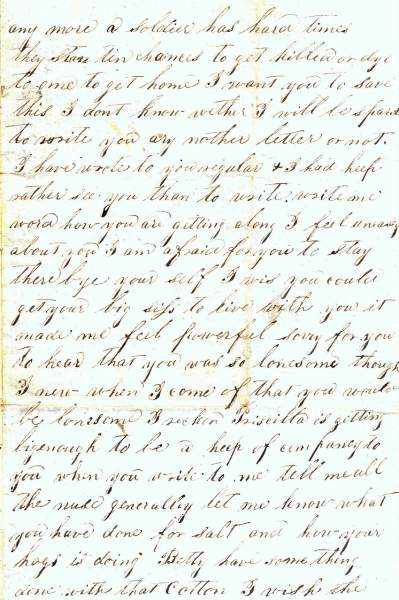 any more a soldier has hard times
they stan ten chances to get killed or dye
to one to get home I want you to save
this I dont know wether I will be spaird
to write you ary nother letter or not.
I have wrote to you regular & I had heep
rather see you than to write write me
word how you are getting along I feel uneasy
about you I am afraid for you to stay
there bye your self I wis you could
get your big siss to live with you it
made me feel powerful sorry for you
to hear that you was so lonesome though
I new when I come of that you would
be lonesome I reckon Priscilla is getting
bigenough to be a heep of company to
you when you write to me tell me all
the nuse generalley let me know what
you have done for salt and how your
hogs is doing Betty have some thing
done with that Cotton I wish she